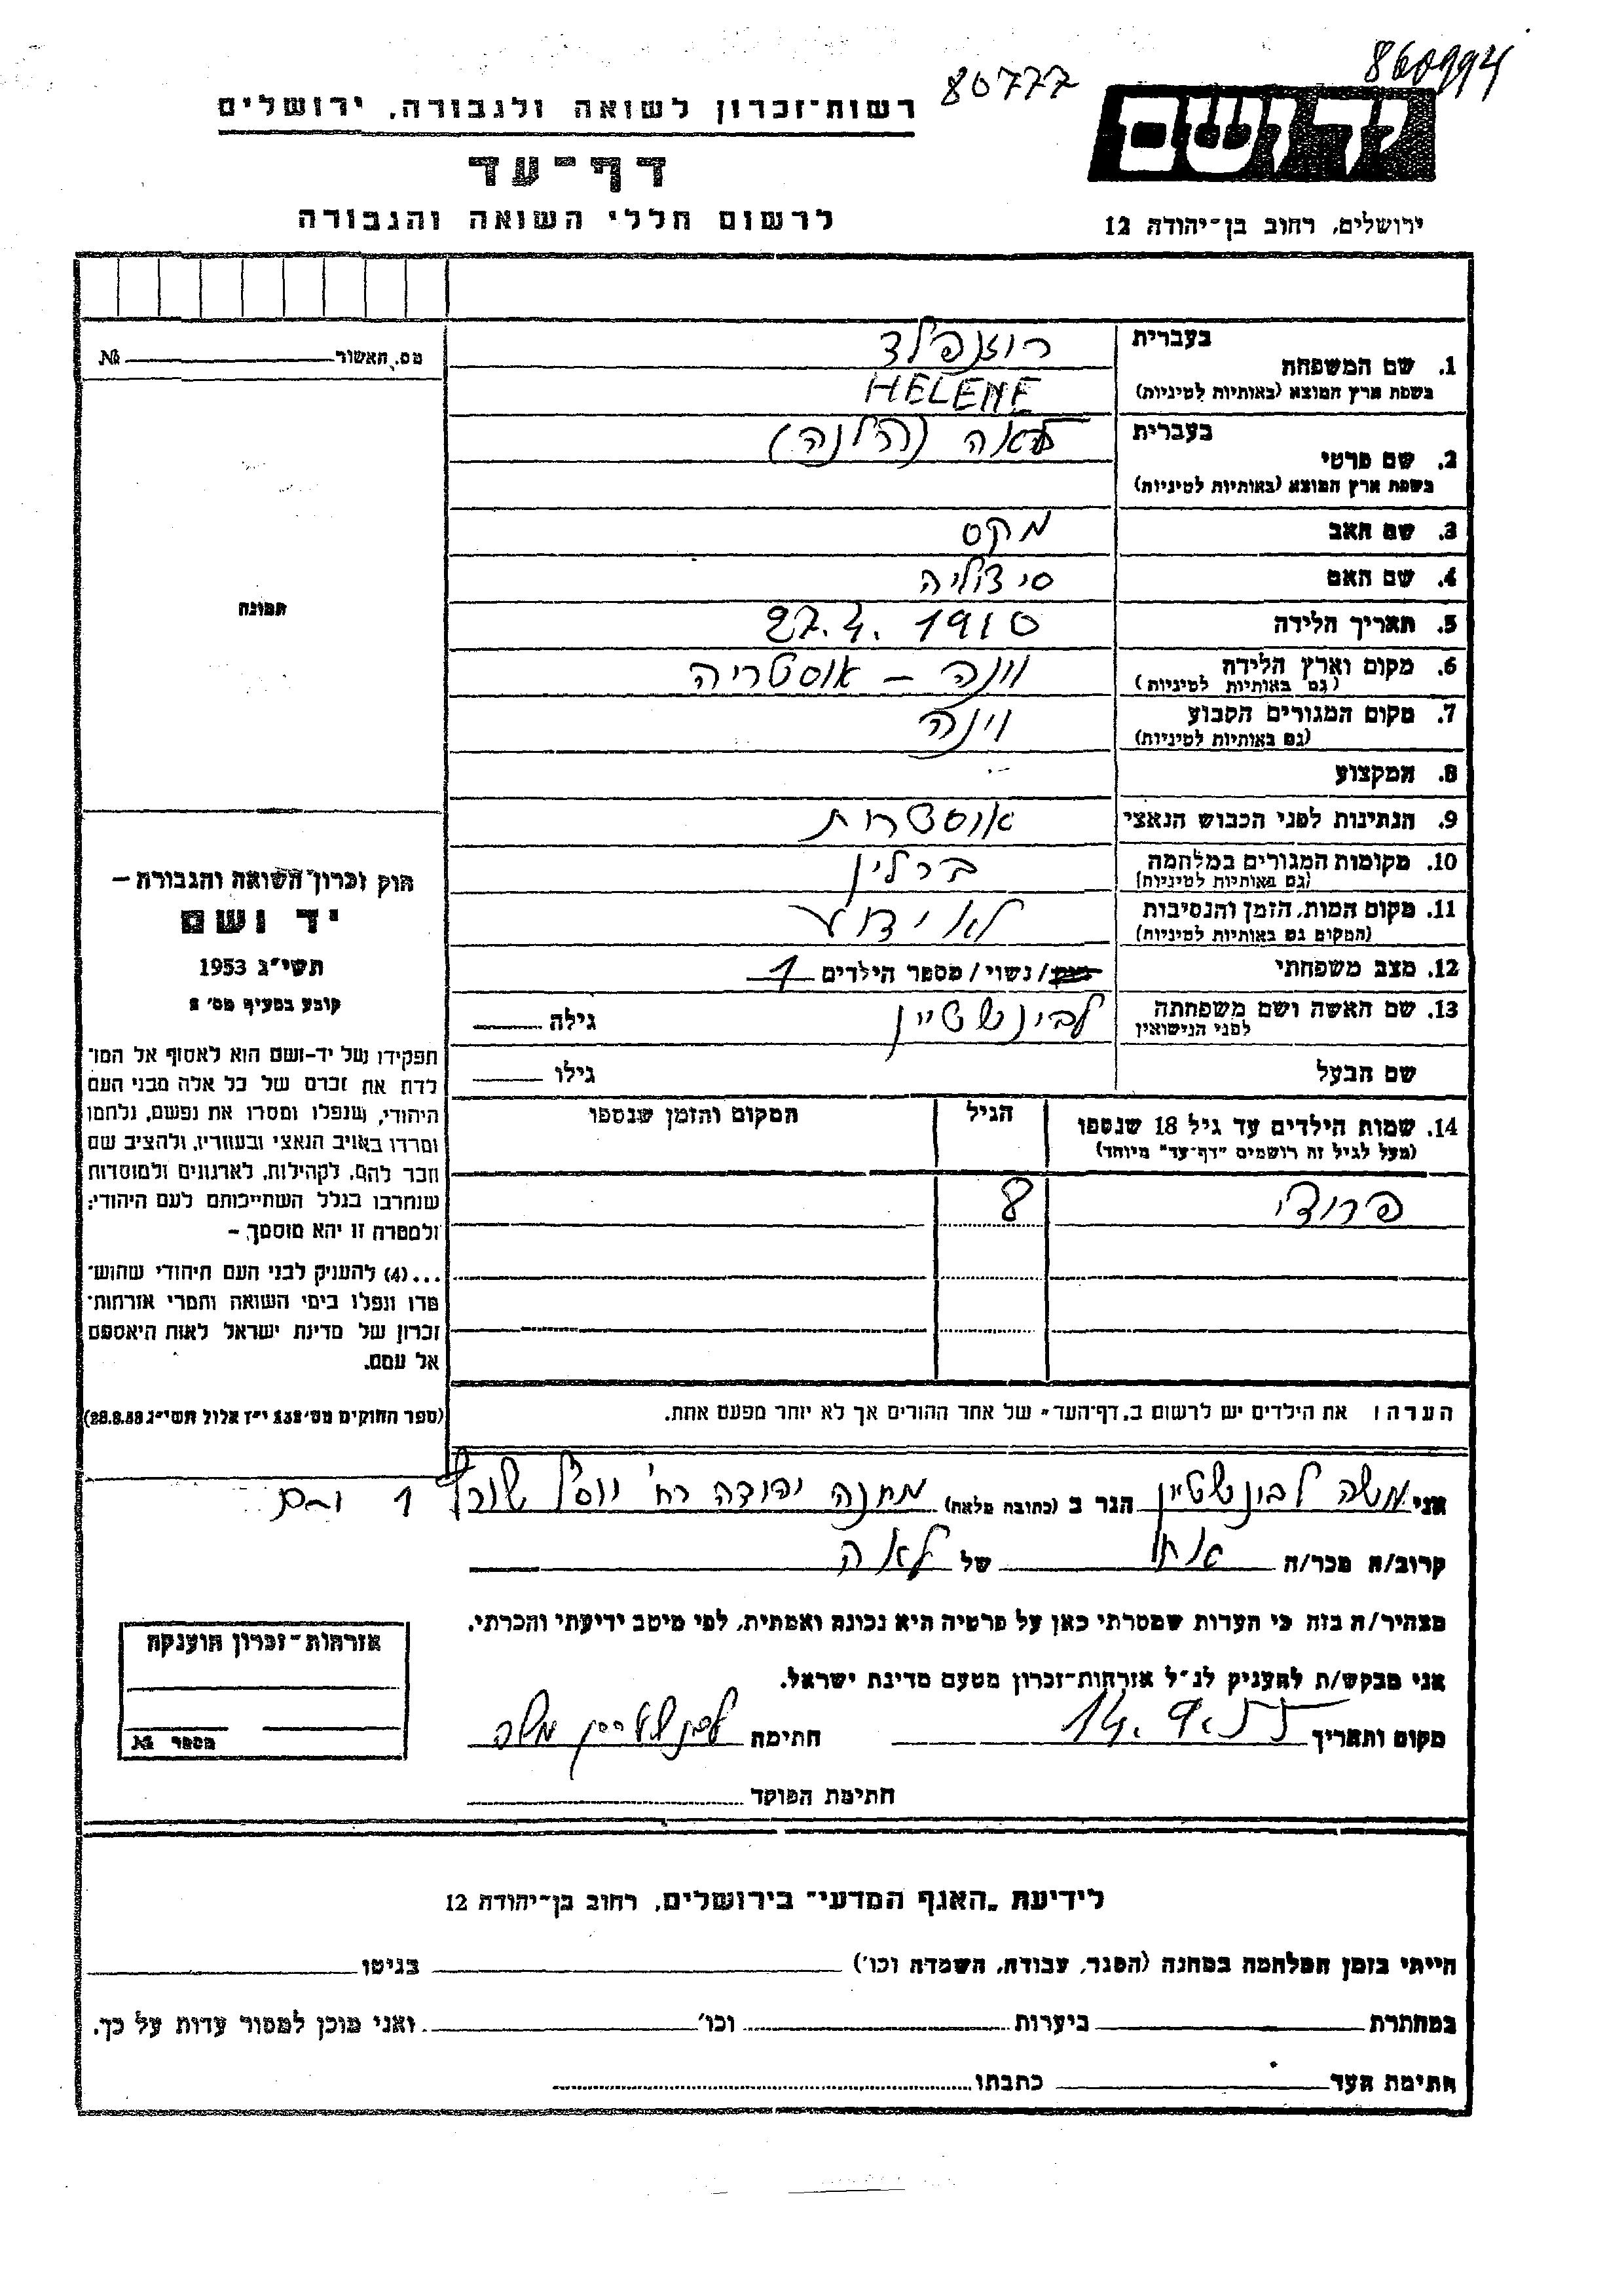 860994
80777
רשות־זכרון לשואה ולגבורה, ירושלים
יד ושם
דף־עד
ירושלים, רחוב בן־יהודה 12
לרשום חללי השואה והגבורה
מס. האשור № 
1. שם המשפחה בעברית רוזנפלד
בשפת ארץ המוצא (באותיות לטיניות) HELENE
2. שם פרטי בעברית לאה (הלנה)
בשפת ארץ המוצא (באותיות לטיניות)
3. שם האב מקס
4. שם האם סידוליה
תמונה
5. תאריך הלידה 27.4.1910
6. מקום וארץ הלידה וינה – אוסטריה
(גם באותיות לטיניות)
7. מקום המגורים הקבוע וינה
(גם באותיות לטיניות)
8. המקצוע
9. הנתינות לפני הכבוש הנאצי אוסטרית
10. מקומות המגורים במלחמה ברלין
(גם באותיות לטיניות)
11. מקום המות, הזמן והנסיבות לא ידוע
(המקום גם באותיות לטיניות)
12. מצב משפחתי /נשוי/ מספר הילדים 1
13. שם האשה ושם משפחתה לבינשטיין גילה
לפני הנישואין
שם הבעל גילו
14. שמות הילדים עד גיל 18 שנספו הגיל המקום והזמן שנספו
(מעל לגיל זה רושמים "דף־עד" מיוחד)
פרודי 8
הערה: את הילדים יש לרשום ב„דף־העד" של אחד ההורים אך לא יותר מפעם אחת.
חוק זכרון השואה והגבורה –
יד ושם
תשי"ג 1953
קובע בסעיף מס' 2
תפקידו של יד־ושם הוא לאסוף אל המו־
לדת את זכרם של כל אלה מבני העם
היהודי, שנפלו ומסרו את נפשם, נלחמו
ומרדו באויב הנאצי ובעוזריו, ולהציב שם
וזכר להם, לקהילות, לארגונים ולמוסדות
שנחרבו בגלל השתייכותם לעם היהודי;
ולמטרה זו יהא מוסמך –
...(4) להעניק לבני העם היהודי שהוש־
מדו ונפלו בימי השואה והמרי אזרחות־
זכרון של מדינת ישראל לאות היאספם
אל עמם.
(ספר החוקים מס' 132 י"ז אלול תשי"ג 28.8.53)
אני משה לבינשטיין הגר ב (כתובת מלאה) מחנה יהודה רח' יוסף
קרוב/ה מכר/ה אחי של לאה
מצהיר/ה בזה כי העדות שמסרתי כאן על פרטיה היא נכונה ואמתית, לפי מיטב ידיעתי והכרתי.
אני מבקש/ת להעניק לנ"ל אזרחות־זכרון מטעם מדינת ישראל.
מקום ותאריך 14.9.55 חתימה לבינשטיין משה
חתימת הפוקד
אזרחות־זכרון הוענקה
מספר №
לידיעת „האגף המדעי" בירושלים, רחוב בן־יהודה 12
הייתי בזמן המלחמה במחנה (הסגר, עבודה, השמדה וכו') בגיטו
במחתרת ביערות וכו' ואני מוכן למסור עדות על כך.
חתימת העד כתבתו